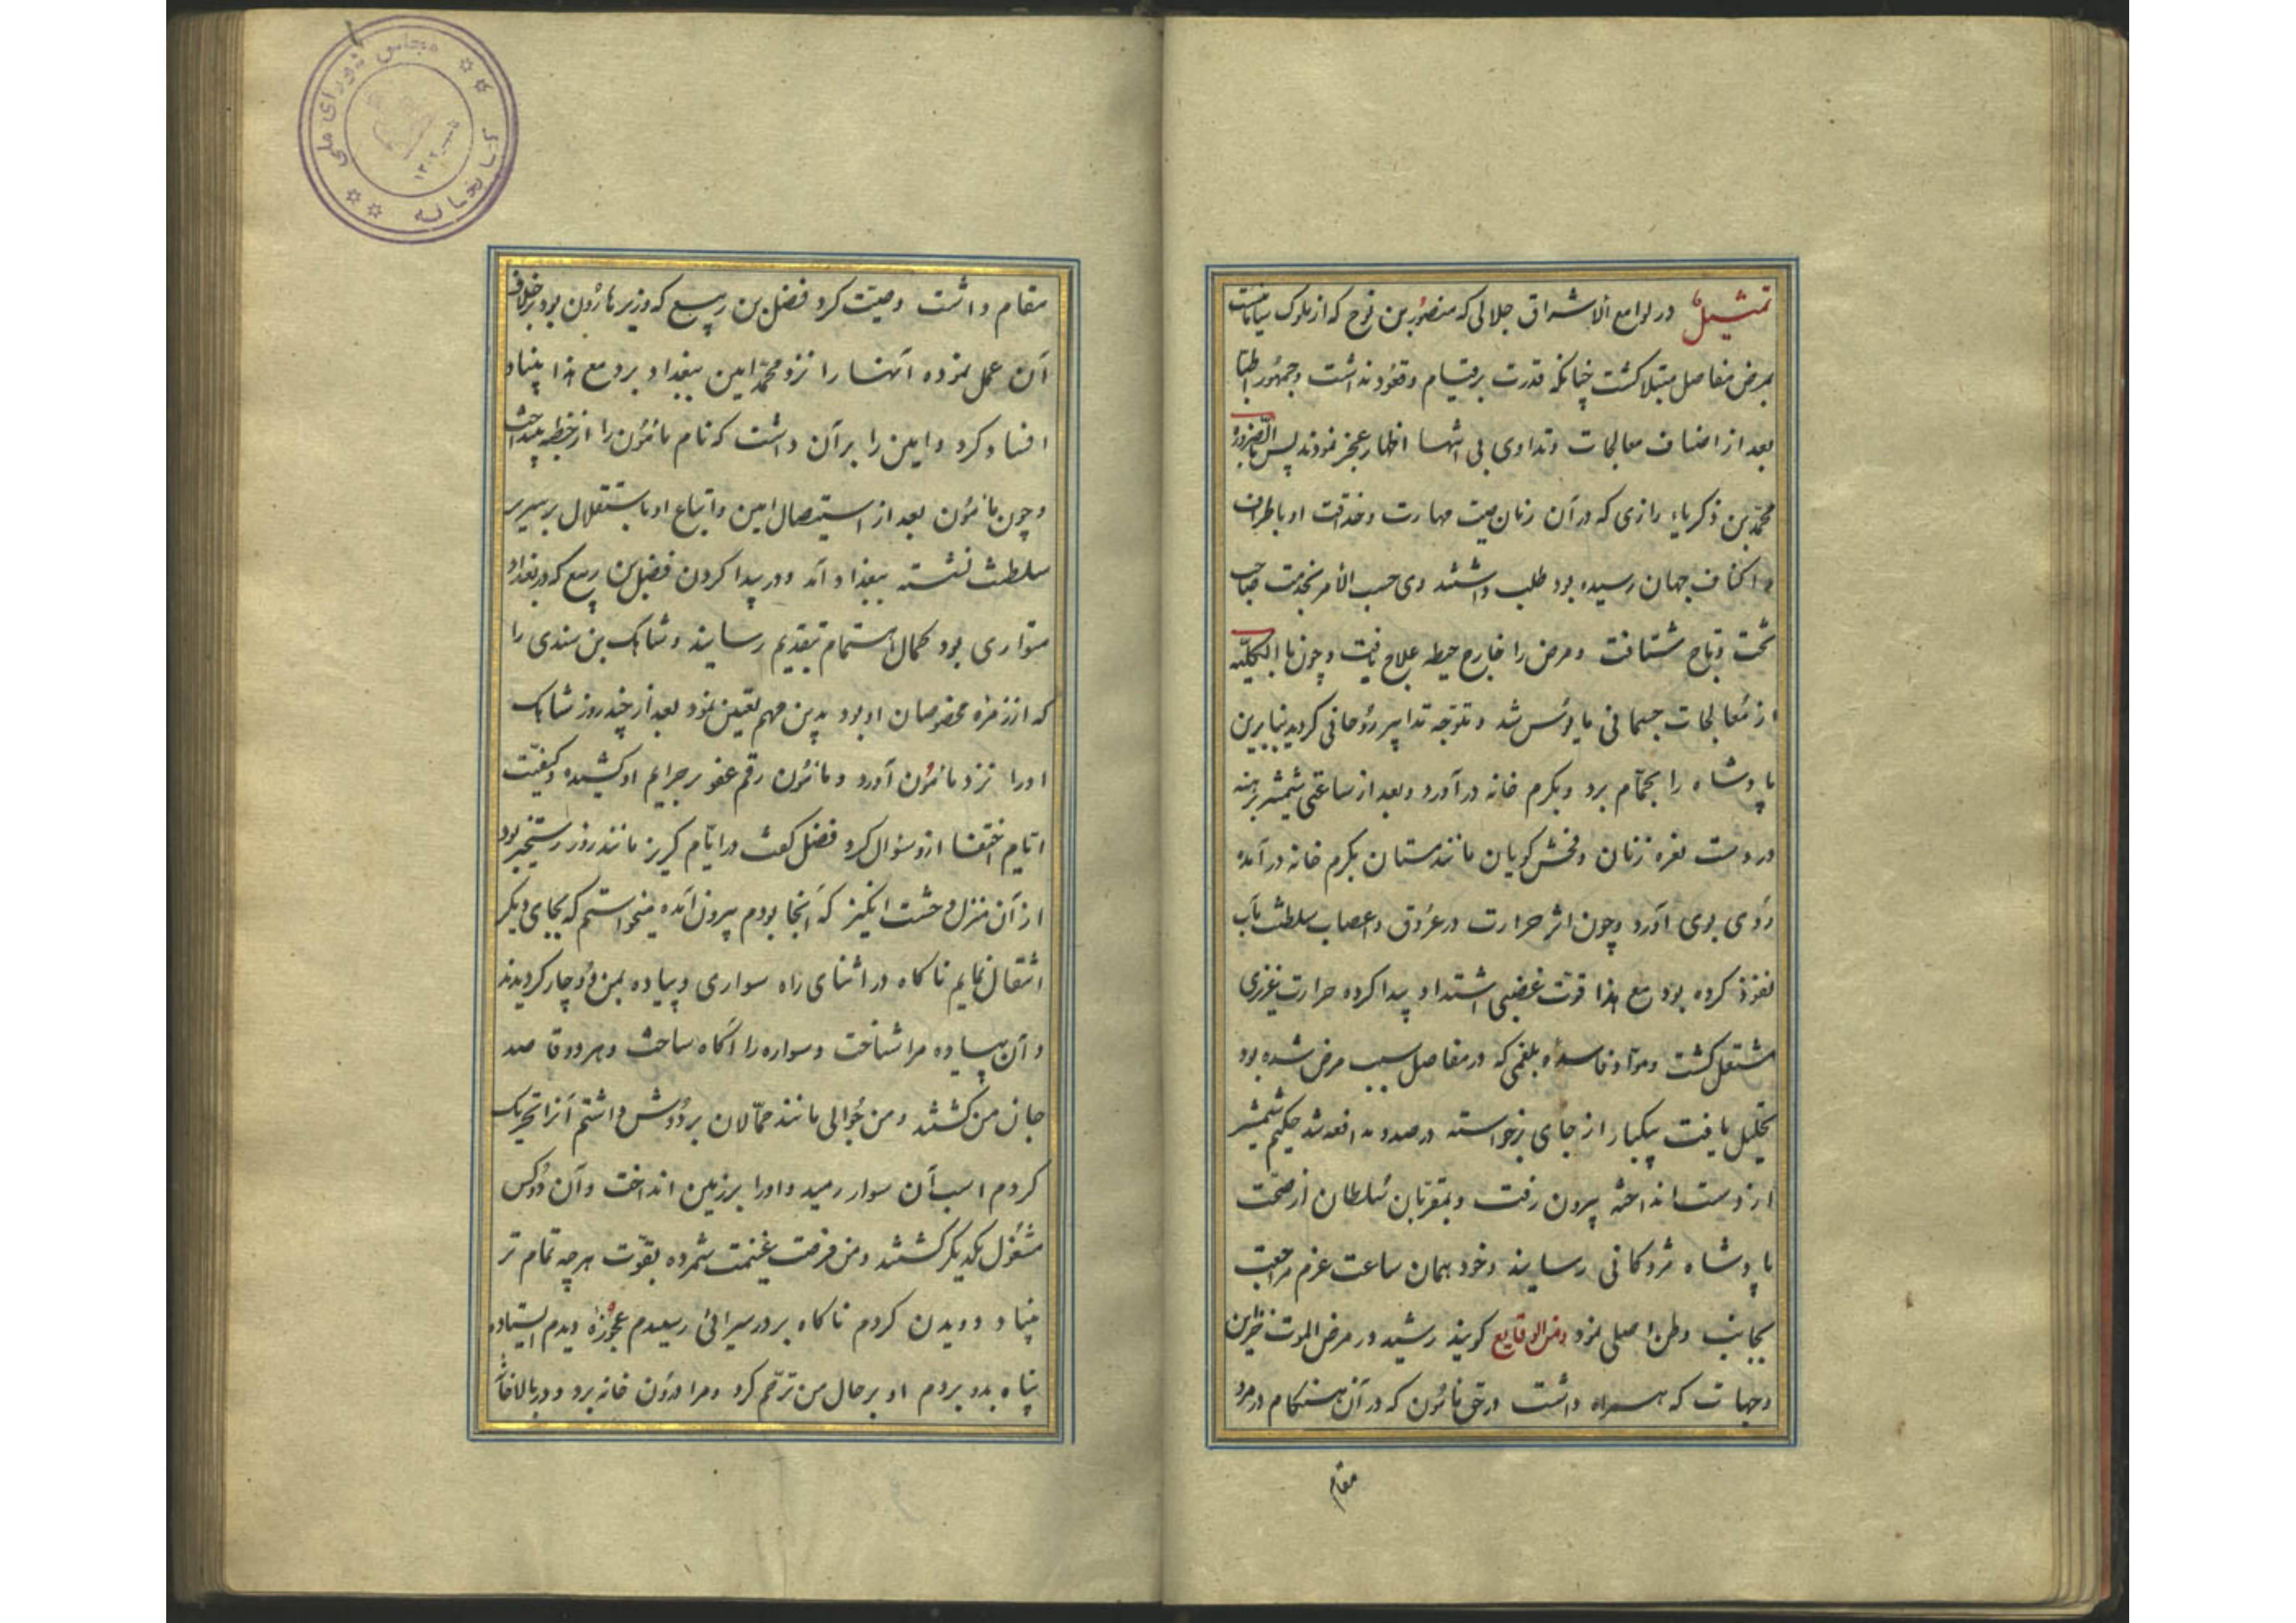 تمثیل در لوامع الاشراق جلالی که منصور بن نوح که از ملوک سامانست
بمرض مفاصل مبتلا کشت چنانکه قدرت بر قیام و قعود نداشت و جمهور اطبا
بعد از اضاف معالجات و تداوی بی انتها اظهار عجز نمودند پس بالضروره
محمد بن ذکریاء رازی که در آن زمان صیت مهارت و حذاقت او باطراف
و اکناف جهان رسیده بود طلب داشتند وی حسب الامر بخدمت صاحب
تخت و تاج شتافت و مرض را خارج حیطه علاج یافت و چون بالکلیه
از معالجات جسمانی مایوس شد متوجه تدابیر روحانی کردید بنابرین
پادشاه را بحمام برد و بکرم خانه درآورد و بعد از ساعتی شمشیر برهنه
در دست نعره زنان و فحش کویان مانند مستان بکرم خانه درآمده
روی بوی آورد و چون اثر حرارت در عروق و اعصاب سلطنت مآب
نفوذ کرده بود مع هذا قوت غضبی اشتداد پیدا کرده حرارت غریزی
مشتعل کشت و مواد فاسده بلغمی که در مفاصل سبب مرض شده بود
تحلیل یافت بیکبار از جای برخواسته درصدد مدافعه شد حکیم شمشیر
از دست انداخته بیرون رفت و بمقربان سلطان از صحت
پادشاه مژدکانی رسانید و خود همان ساعت عزم مراجعت
بجانب وطن اصلی نمود ومن الوقایع کویند رشید در مرض الموت خزاین
و جهات که همراه داشت در حق مأمون که در آن هنکام در مرو
مقام
مقام داشت وصیت کرد فضل بن ربیع که وزیر هارون بود برخلاف
آن عمل نموده آنها را نزد محمد امین ببغداد برد مع هذا بنیاد
افساد کرد و امین را بر آن داشت که نام مأمون را از خطبه بینداخت
و چون مأمون بعد از استیصال امین و اتباع او باستقلال بر سریر
سلطنت نشسته ببغداد آمد و در پیدا کردن فضل بن ربیع که در بغداد
متواری بود کمال اهتمام بتقدیم رسانید و شاهک بن سندی را
که از زمره مخصوصان او بود بدین مهم تعین نمود بعد از چند روز شاهک
او را نزد مأمون آورد و مأمون رقم عفو بر جرایم او کشیده و کیفیت
ایام اختفا ازو سؤال کرد فضل کفت در ایام کریز مانند روز رستخیز بود
از آن منزل وحشت انکیز که آنجا بودم بیرون آمده میخواستم که بجای دیکر
انتقال نمایم ناکاه در اثنای راه سواری و پیاده بمن دوچار کردیدند
و آن پیاده مرا شناخت و سواره را آکاه ساخت و هر دو قاصد
جان من کشتند و من جوالی مانند حمالان بر دوش داشتم آنرا تحریک
کردم اسب آن سوار رمید و او را بر زمین انداخت و آن دو کس
مشغول یکدیکر کشتند و من فرصت غنیمت شمرده بقوت هر چه تمام تر
بنیاد دویدن کردم ناکاه بر در سرائی رسیدم عجوزه دیدم ایستاده
پناه بدو بردم او بر حال من ترحم کرد و مرا درون خانه برد و در بالاخانه
کتابخانه
مجلس شورای ملی